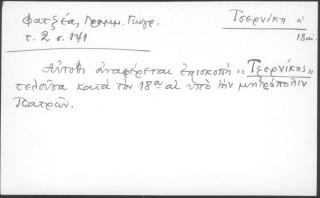 Φατζέα, Γραμμ. Γεωγρ.
τ. 2 σ. 141
Τσερνίκη ἡ
18 αἰ.
Αὐτόθι ἀναφέρεται ἐπισκοπή "Τζερνίκης"
τελοῦσα κατά τόν 18ον αἰ. ὑπό τήν μητρόπολιν
Πατρῶν.